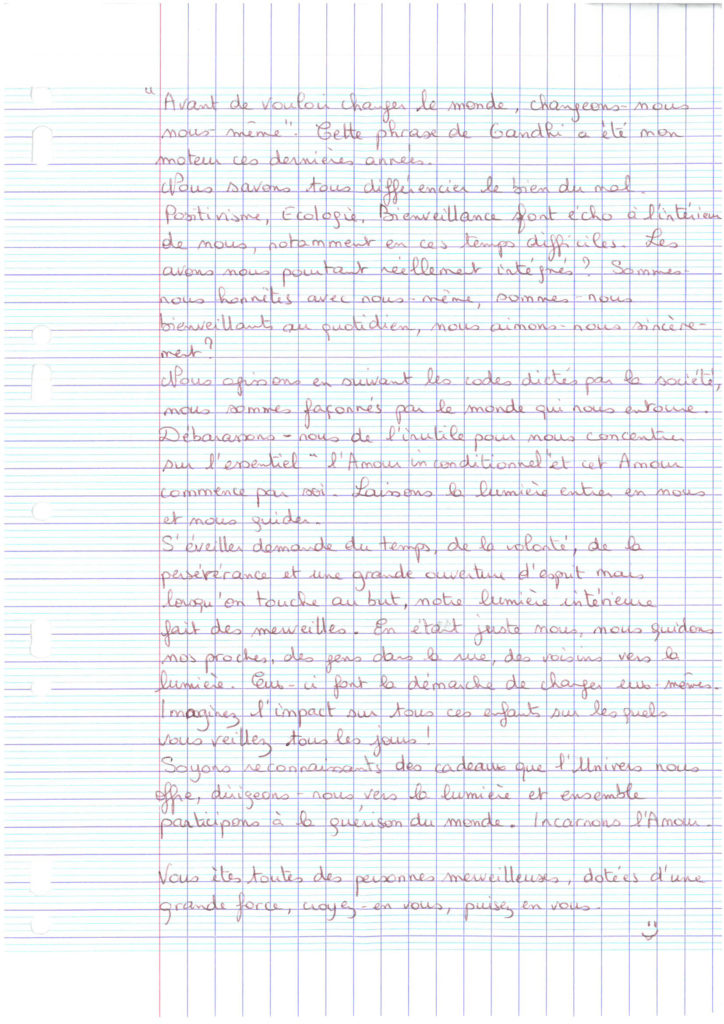 "Avant de vouloir changer le monde, changeons-nous
nous-même". Cette phrase de Gandhi a été mon
moteur ces dernières années.
Nous savons tous différencier le bien du mal.
Positivisme, Ecologie, Bienveillance font écho à l'intérieur
de nous, notamment en ces temps difficiles. Les
avons nous pourtant réellement intégrés ? Sommes-
nous honnêtes avec nous-même, sommes-nous
bienveillants au quotidien, nous aimons-nous sincère-
ment ?
Nous agissons en suivant les codes dictés par la société,
nous sommes façonnés par le monde qui nous entoure.
Débarassons-nous de l'inutile pour nous concentrer
sur l'essentiel "l'Amour inconditionnel" et cet Amour
commence par soi. Laissons la lumière entrer en nous
et nous guider.
S'éveiller demande du temps, de la volonté, de la
persévérance et une grande ouverture d'esprit mais
lorsqu'on touche au but, notre lumière intérieure
fait des merveilles. En étant juste nous, nous guidons
nos proches, des gens dans la rue, des voisins vers la
lumière. Eux-ci font la démarche de changer eux-mêmes.
Imaginez l'impact sur tous ces enfants sur lesquels
vous veillez tous les jours !
Soyons reconnaissants des cadeaux que l'Univers nous
offre, dirigeons-nous vers la lumière et ensemble
participons à la guérison du monde. Incarnons l'Amour.
Vous êtes toutes des personnes merveilleuses, dotées d'une
grande force, croyez-en vous, puisez en vous.